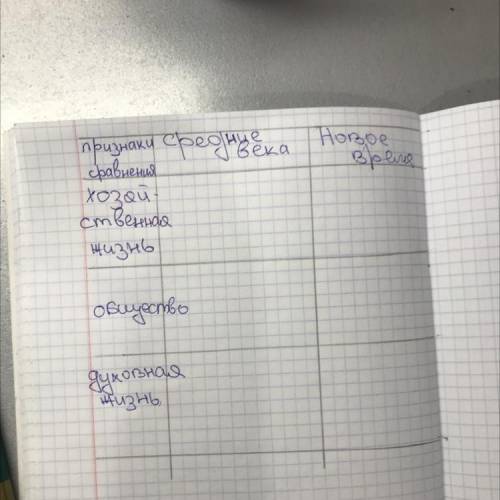 признаки средние века Новое время
сравнения
хозяй-
ственная
жизнь
общество
духовная
жизнь